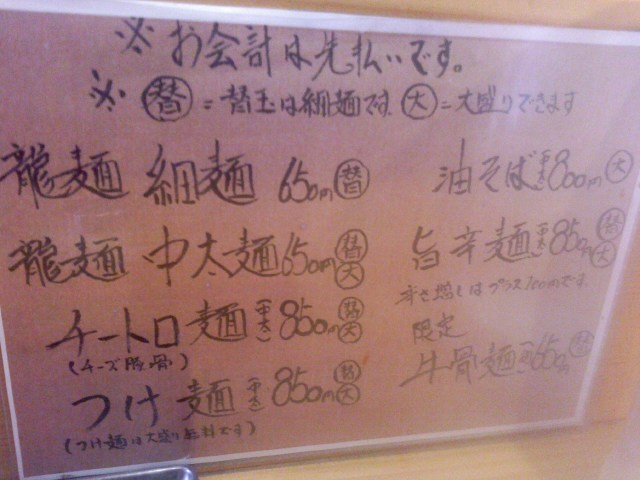 ※お会計は先払いです。
※替=替玉は細麺です。大=大盛りできます
龍麺 細麺 650円 替
龍麺 中太麺 650円 替 大
チートロ麺(中太) 850円 替 大
(チーズ豚骨)
つけ麺(中太) 850円 替 大
(つけ麺は大盛り無料です)
油そば(中太) 800円 大
旨辛麺(中太) 850円 替 大
辛さ増しはプラス100円です。
限定
牛骨麺 650 替